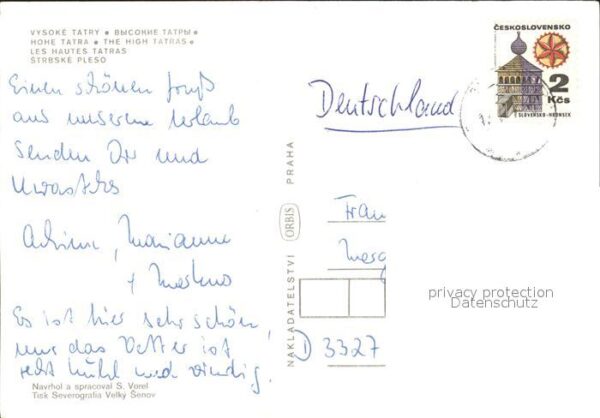 VYSOKÉ TATRY • ВЫСОКИЕ ТАТРЫ •
HOHE TATRA • THE HIGH TATRAS •
LES HAUTES TATRAS
ŠTRBSKÉ PLESO
Einen schönen Gruß
aus unserem Urlaub
senden Dir und
Marianne
Es ist hier sehr schön,
nur das Wetter ist
recht kühl und windig.
Navrhol a spracoval S. Vorel
Tisk Severografia Velký Šenov
NAKLADATELSTVÍ ORBIS PRAHA
ČESKOSLOVENSKO
2
Kčs
SLOVENSKO-HRONSEK
Deutschland
Frau
D 3327
privacy protection
Datenschutz